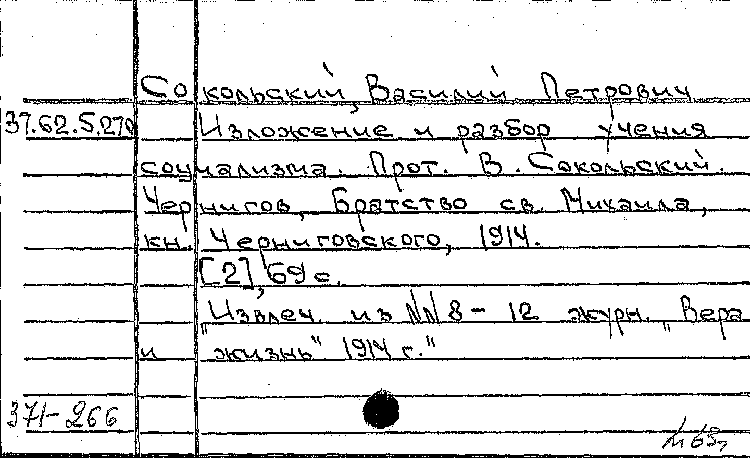 Сокольский, Василий Петрович
37.62.5.270 Изложение и разбор учения
социализма. Прот. В. Сокольский.
Чернигов, Братство св. Михаила,
кн. Черниговского, 1914.
[2], 69 с.
"Извлеч. из NN 8 - 12 журн. "Вера
и жизнь" 1914 г."
371-266